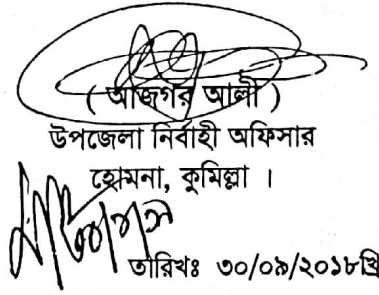 ( আজগর আলী )
উপজেলা নির্বাহী অফিসার
হোমনা, কুমিল্লা ।
তারিখঃ ৩০/০৯/২০১৮খ্রি